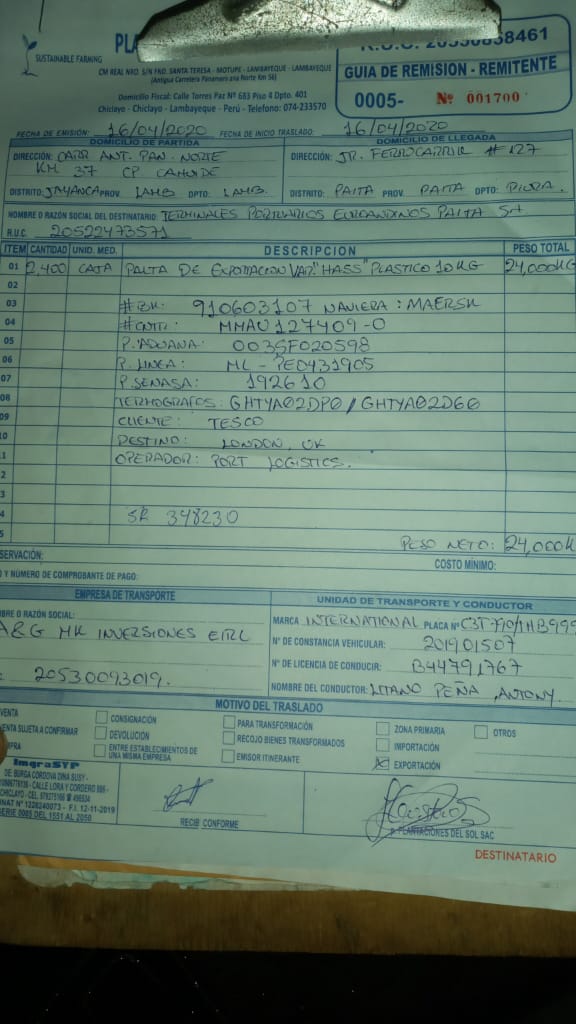 SUSTAINABLE FARMING
PLA
CM REAL NRO. S/N FND. SANTA TERESA - MOTUPE - LAMBAYEQUE - LAMBAYEQUE
(Antigua Carretera Panamericana Norte Km 56)
Domicilio Fiscal: Calle Torres Paz Nº 683 Piso 4 Dpto. 401
Chiclayo - Chiclayo - Lambayeque - Perú - Telefono: 074-233570
R.U.C. 20550838461
GUIA DE REMISION - REMITENTE
0005- Nº 001700
FECHA DE EMISIÓN: 16/04/2020 FECHA DE INICIO TRASLADO: 16/04/2020
DOMICILIO DE PARTIDA
DIRECCIÓN: CARR ANT. PAN. NORTE
KM 37 CP CAHUIDE
DISTRITO: JAYANCA PROV. LAMB DPTO: LAMB.
DOMICILIO DE LLEGADA
DIRECCIÓN: JR. FERROCARRIL #127
DISTRITO: PAITA PROV. PAITA DPTO: PIURA.
NOMBRE O RAZÓN SOCIAL DEL DESTINATARIO: TERMINALES PORTUARIOS EUROANDINOS PAITA SA
R.U.C. 20522473571
ITEM CANTIDAD UNID. MED. DESCRIPCION PESO TOTAL
01 2,400 CAJA PALTA DE EXPORTACION VAR. "HASS" PLASTICO 10KG 24,000KG
02
03 #BK: 910603107 NAVIERA: MAERSK
04 #CNTR: MMAU127409-0
05 P. ADUANA: 003SF020598
06 P. LINEA: ML-PE0431905
07 P. SENASA: 192610
08 TERMOGRAFOS: GHTYA02DP0 / GHTYA02D60
09 CLIENTE: TESCO
10 DESTINO: LONDON, UK
1 OPERADOR: PORT LOGISTICS.
2
3
4 SR 348230
5 PESO NETO: 24,000K
SERVACIÓN:
COSTO MÍNIMO:
O Y NÚMERO DE COMPROBANTE DE PAGO:
EMPRESA DE TRANSPORTE
BRE O RAZÓN SOCIAL:
A&G MK INVERSIONES EIRL
: 20530093019.
UNIDAD DE TRANSPORTE Y CONDUCTOR
MARCA INTERNATIONAL PLACA Nº C3T790/1HB999
Nº DE CONSTANCIA VEHICULAR: 201901507
Nº DE LICENCIA DE CONDUCIR: B44791767
NOMBRE DEL CONDUCTOR: LITANO PEÑA, ANTONY.
MOTIVO DEL TRASLADO
VENTA
VENTA SUJETA A CONFIRMAR
PRA
CONSIGNACIÓN
DEVOLUCIÓN
ENTRE ESTABLECIMIENTOS DE
UNA MISMA EMPRESA
PARA TRANSFORMACIÓN
RECOJO BIENES TRANSFORMADOS
EMISOR ITINERANTE
ZONA PRIMARIA
IMPORTACIÓN
EXPORTACIÓN
OTROS
ImgraSYP
DE: BURGA CORDOVA DINA SUSY -
- CALLE LORA Y CORDERO
CHICLAYO - CEL.
F.I. 12-11-2019
SERIE 0005 DEL 1551 AL 2050
RECIBI CONFORME
P. PLANTACIONES DEL SOL SAC
DESTINATARIO